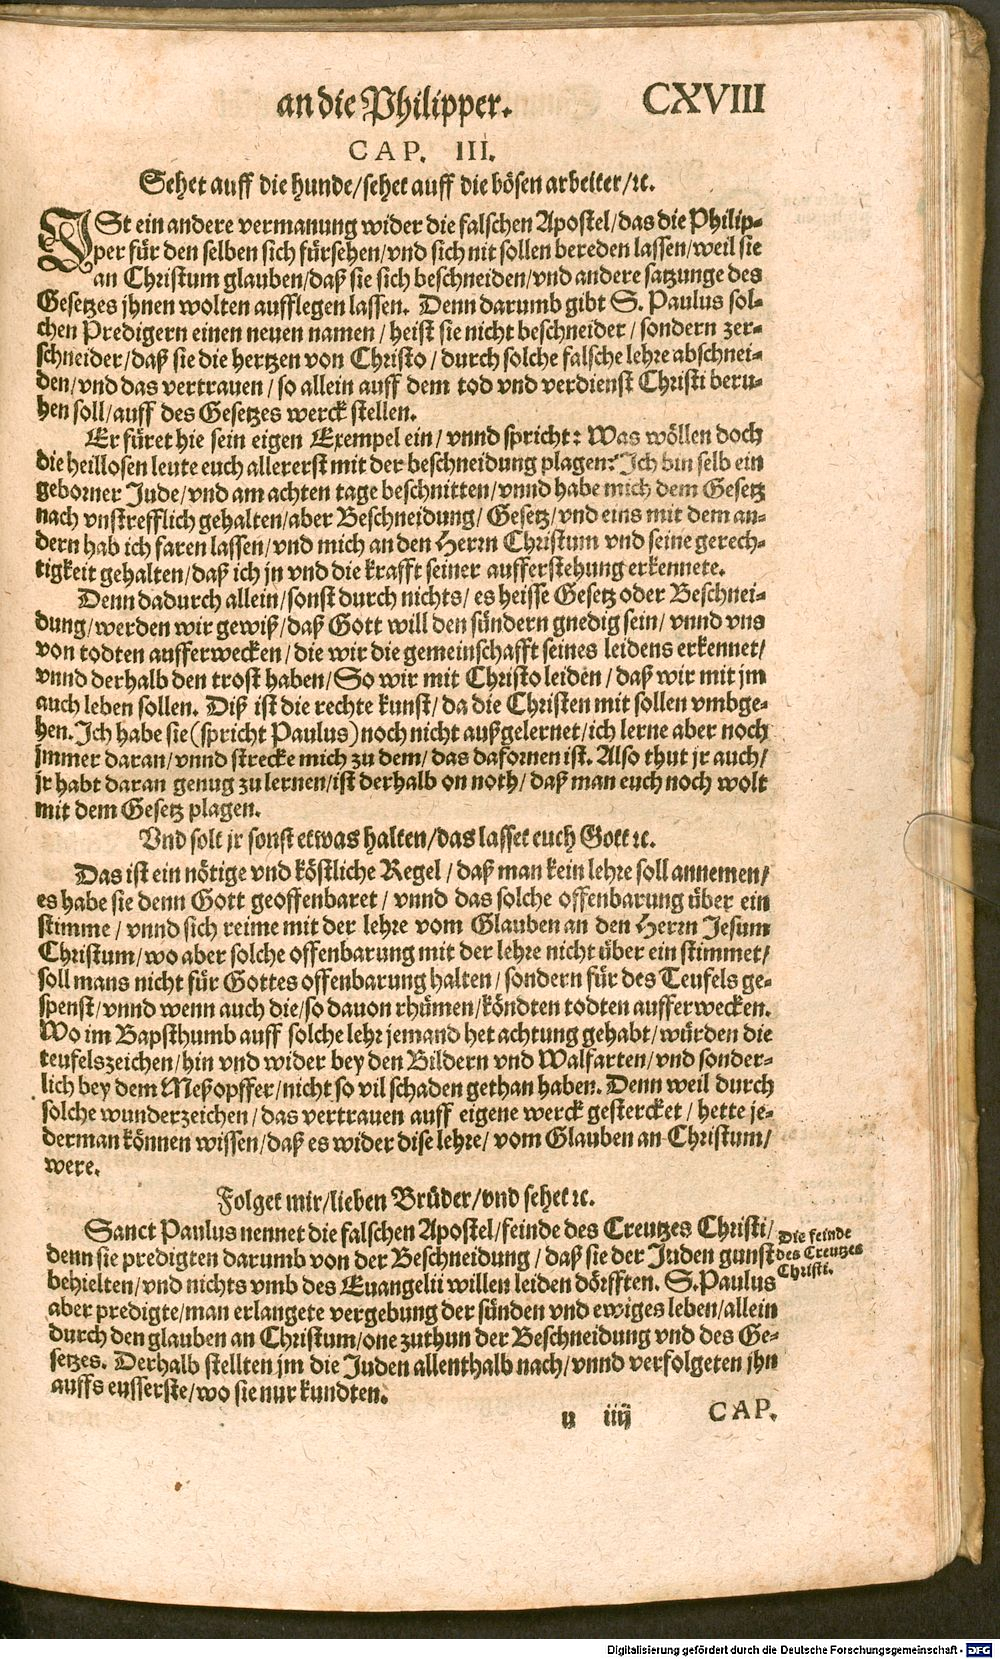 an die Philipper. CXVIII
CAP. III.
Sehet auff die hunde/sehet auff die bösen arbeiter/ꝛc.
ISt ein andere vermanung wider die falschen Apostel/das die Philip-
per für den selben sich fürsehen/vnd sich nit sollen bereden lassen/weil sie
an Christum glauben/daß sie sich beschneiden/vnd andere satzunge des
Gesetzes jhnen wolten aufflegen lassen. Denn darumb gibt S. Paulus sol-
chen Predigern einen neuen namen/heist sie nicht beschneider/sondern zer-
schneider/daß sie die hertzen von Christo/durch solche falsche lehre abschnei-
den/vnd das vertrauen/so allein auff dem tod vnd verdienst Christi beru-
hen soll/auff des Gesetzes werck stellen.
Er füret hie sein eigen Exempel ein/vnnd spricht: Was wöllen doch
die heillosen leute euch allererst mit der beschneidung plagen? Ich bin selb ein
geborner Jude/vnd am achten tage beschnitten/vnnd habe mich dem Gesetz
nach vnstrefflich gehalten/aber Beschneidung/Gesetz/vnd eins mit dem an-
dern hab ich faren lassen/vnd mich an den Herrn Christum vnd seine gerech-
tigkeit gehalten/daß ich jn vnd die krafft seiner aufferstehung erkennete.
Denn dadurch allein/sonst durch nichts/es heisse Gesetz oder Beschnei-
dung/werden wir gewiß/daß Gott will den sündern gnedig sein/vnnd vns
von todten aufferwecken/die wir die gemeinschafft seines leidens erkennet/
vnnd derhalb den trost haben/So wir mit Christo leiden/daß wir mit jm
auch leben sollen. Diß ist die rechte kunst/da die Christen mit sollen vmbge-
hen. Ich habe sie (spricht Paulus) noch nicht außgelernet/ich lerne aber noch
immer daran/vnnd strecke mich zu dem/das dafornen ist. Also thut jr auch/
jr habt daran genug zu lernen/ist derhalb on noth/daß man euch noch wolt
mit dem Gesetz plagen.
Vnd solt jr sonst etwas halten/das lasset euch Gott ꝛc.
Das ist ein nötige vnd köstliche Regel/daß man kein lehre soll annemen/
es habe sie denn Gott geoffenbaret/vnnd das solche offenbarung über ein
stimme/vnnd sich reime mit der lehre vom Glauben an den Herrn Jesum
Christum/wo aber solche offenbarung mit der lehre nicht über ein stimmet/
soll mans nicht für Gottes offenbarung halten/sondern für des Teufels ge-
spenst/vnnd wenn auch die/so dauon rhümen/köndten todten aufferwecken.
Wo im Bapsthumb auff solche lehr jemand het achtung gehabt/würden die
teufelszeichen/hin vnd wider bey den Bildern vnd Walfarten/vnd sonder-
lich bey dem Meßopffer/nicht so vil schaden gethan haben. Denn weil durch
solche wunderzeichen/das vertrauen auff eigene werck gestercket/hette je-
derman können wissen/daß es wider dise lehre/vom Glauben an Christum/
were.
Folget mir/lieben Brüder/vnd sehet ꝛc.
Sanct Paulus nennet die falschen Apostel/feinde des Creutzes Christi/
denn sie predigten darumb von der Beschneidung/daß sie der Juden gunst
behielten/vnd nichts vmb des Euangelii willen leiden dörfften. S. Paulus
aber predigte/man erlangete vergebung der sünden vnd ewiges leben/allein
durch den glauben an Christum/one zuthun der Beschneidung vnd des Ge-
setzes. Derhalb stellten jm die Juden allenthalb nach/vnnd verfolgeten jhn
auffs eusserste/wo sie nur kundten.
Die feinde
des Creutzes
Christi.
u iiij CAP.
Digitalisierung gefördert durch die Deutsche Forschungsgemeinschaft - DFG